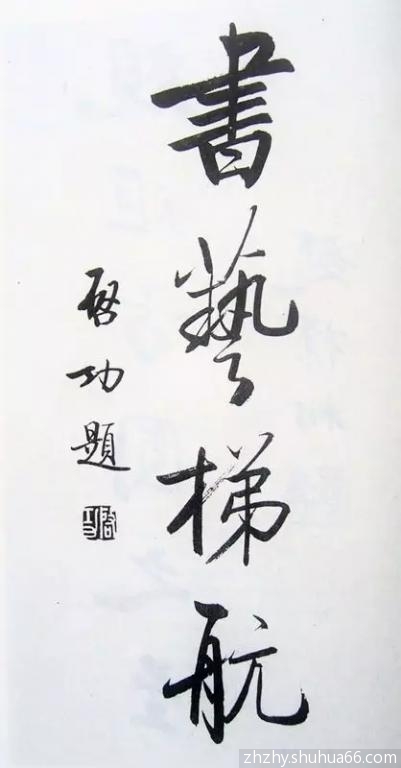 書藝梯航
啓功題
啓功
zhzhyshuhua66.com